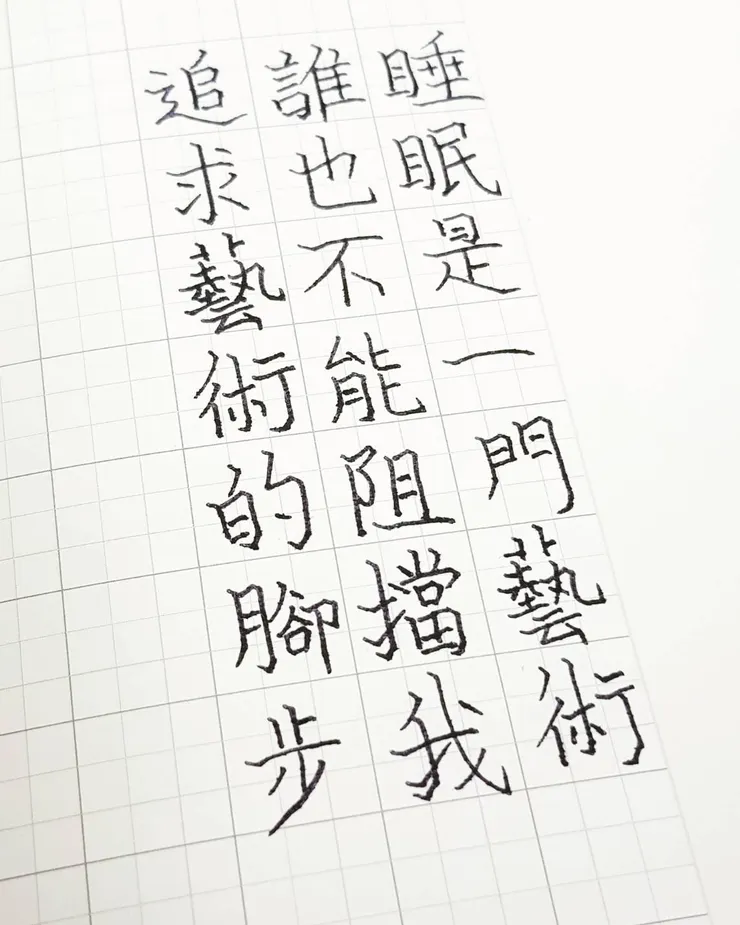 睡眠是一門藝術
誰也不能阻擋我
追求藝術的腳步